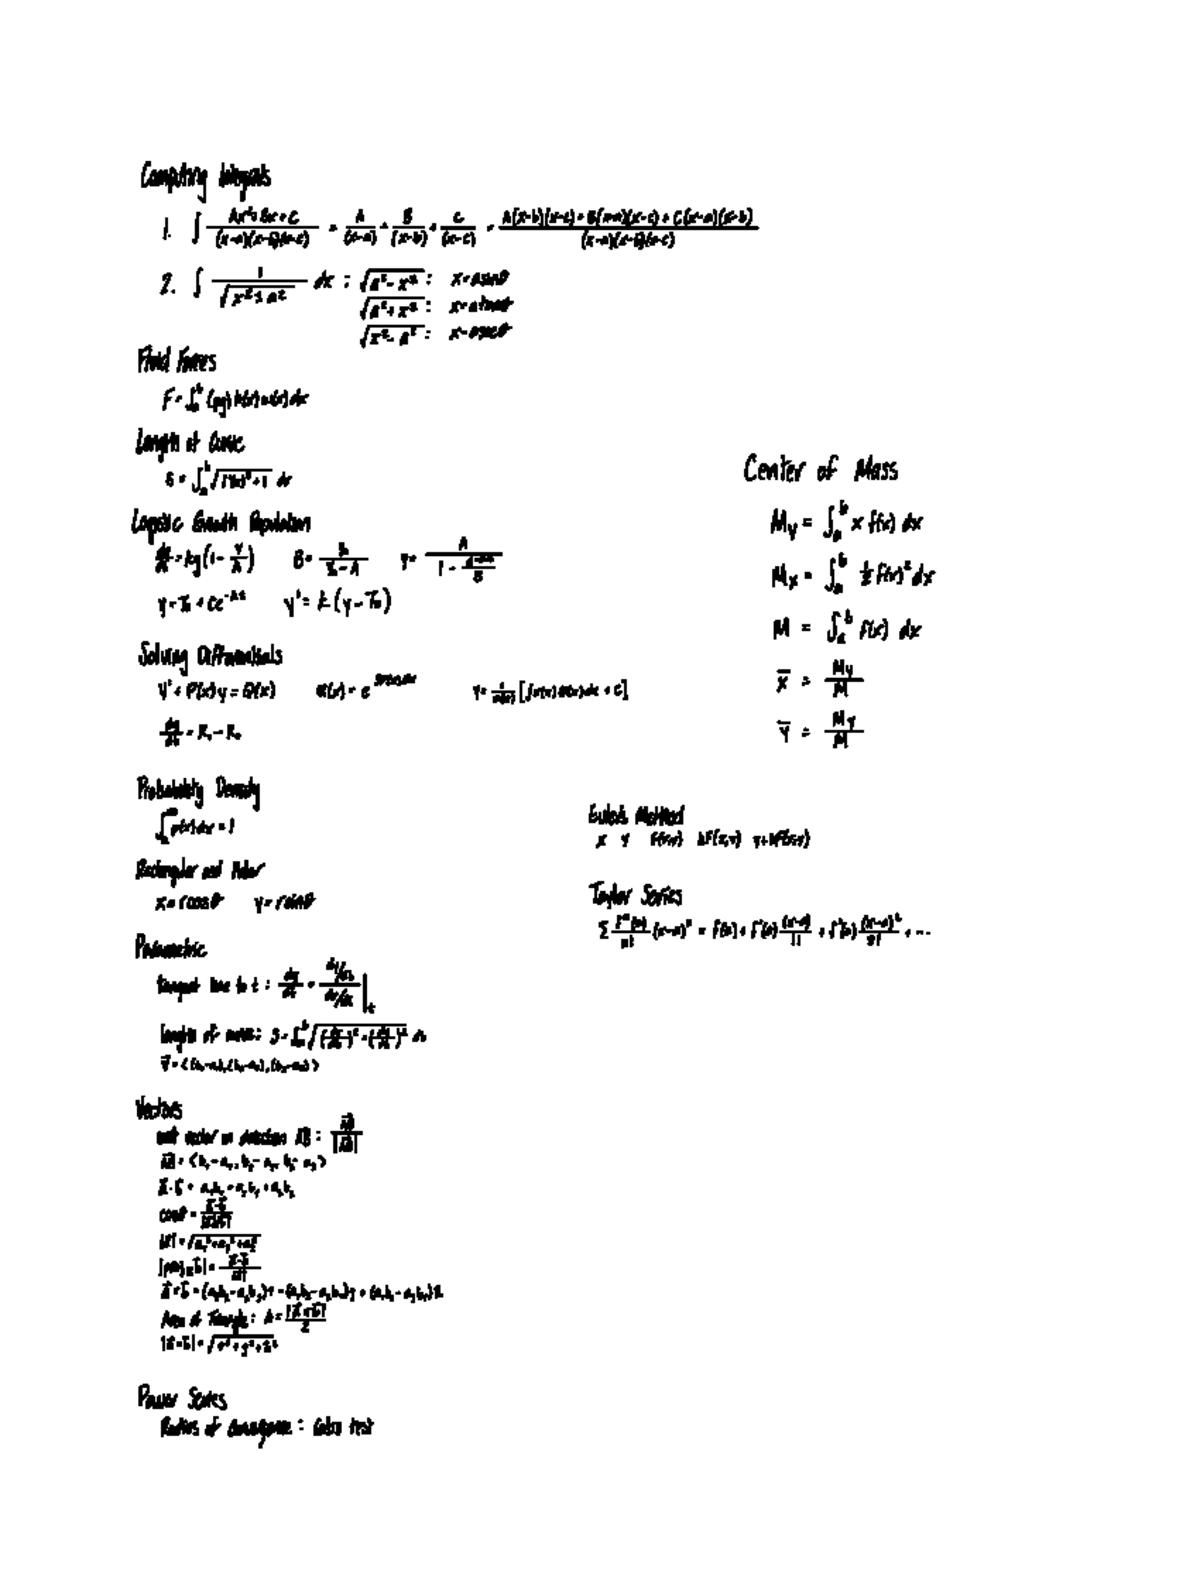 Computing Integrals
1. ∫ Ax²+Bx+C / (x-a)(x-b)(x-c) = A/(x-a) + B/(x-b) + C/(x-c) = A(x-b)(x-c) + B(x-a)(x-c) + C(x-a)(x-b) / (x-a)(x-b)(x-c)
2. ∫ 1/√(x²±a²) dx : √(a²-x²) : x=asinθ
√(a²+x²) : x=atanθ
√(x²-a²) : x=asecθ
Fluid Forces
F = ∫ₐᵇ (ρg) h(x) w(x) dx
Length of Curve
S = ∫ₐᵇ √(f'(x)²+1) dx
Logistic Growth Population
dy/dt = ky(1 - y/A) B = y₀/(y₀-A) y =
y = T₀ + Ce⁻ᵏᵗ y' = k(y-T₀)
Solving Differentials
y' + P(x)y = Q(x) α(x) = e y = 1/α(x) [∫α(x) Q(x) dx + C]
dy/dt = R₁ - R₀
Probability Density
p(x) dx = 1
Rectangular and Polar
x = rcosθ y = rsinθ
Parametric
tangent line to t : dy/dx = dy/dt / dx/dt |t
length of : S = ∫ₐᵇ √((dx/dt)² + (dy/dt)²) dt
Vectors
unit vector in direction AB : AB/|AB|
AB = <b₁-a₁, b₂-a₂, b₃-a₃>
a·b = a₁b₁ + a₂b₂ + a₃b₃
cosθ = a·b/|a||b|
|a| = √(a₁²+a₂²+a₃²)
|proj b| = a·b/|a|
Area of Triangle: A = |a×b|/2
|a×b| = √(x²+y²+z²)
Power Series
Radius of convergence : ratio test
Center of Mass
My = ∫ₐᵇ x f(x) dx
Mx = ∫ₐᵇ ½ f(x)² dx
M = ∫ₐᵇ f(x) dx
x̄ = My/M
ȳ = My/M
Euler's Method
x y F(x,y) hF(x,y) y+hF(x,y)
Taylor Series
Σ fⁿ(a)/n! (x-a)ⁿ = f(a) + f'(a) (x-a)/1! + f''(a) (x-a)²/2! + ...